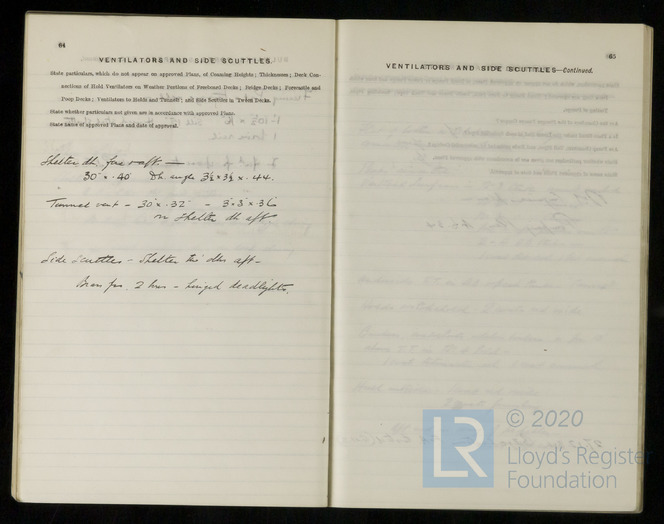 64
VENTILATORS AND SIDE SCUTTLES.
State particulars, which do not appear on approved Plans, of Coaming Heights; Thicknesses; Deck Con-
nections of Hold Ventilators on Weather Portions of Freeboard Decks; Bridge Decks; Forecastle and
Poop Decks; Ventilators to Holds and Tunnels; and Side Scuttles in 'Tween Decks.
State whether particulars not given are in accordance with approved Plans.
State name of approved Plans and date of approval.
Shelter dk fore & aft. —
30" × .40 Dk angle 3½ × 3½ × .44.
Tunnel vent - 30" × .32 - 3 × 3 × 36
on Shelter dk aft
Side Scuttles - Shelter dks aft -
2 - hinged deadlights.
65
VENTILATORS AND SIDE SCUTTLES—Continued.
LR
© 2020
Lloyd's Register
Foundation